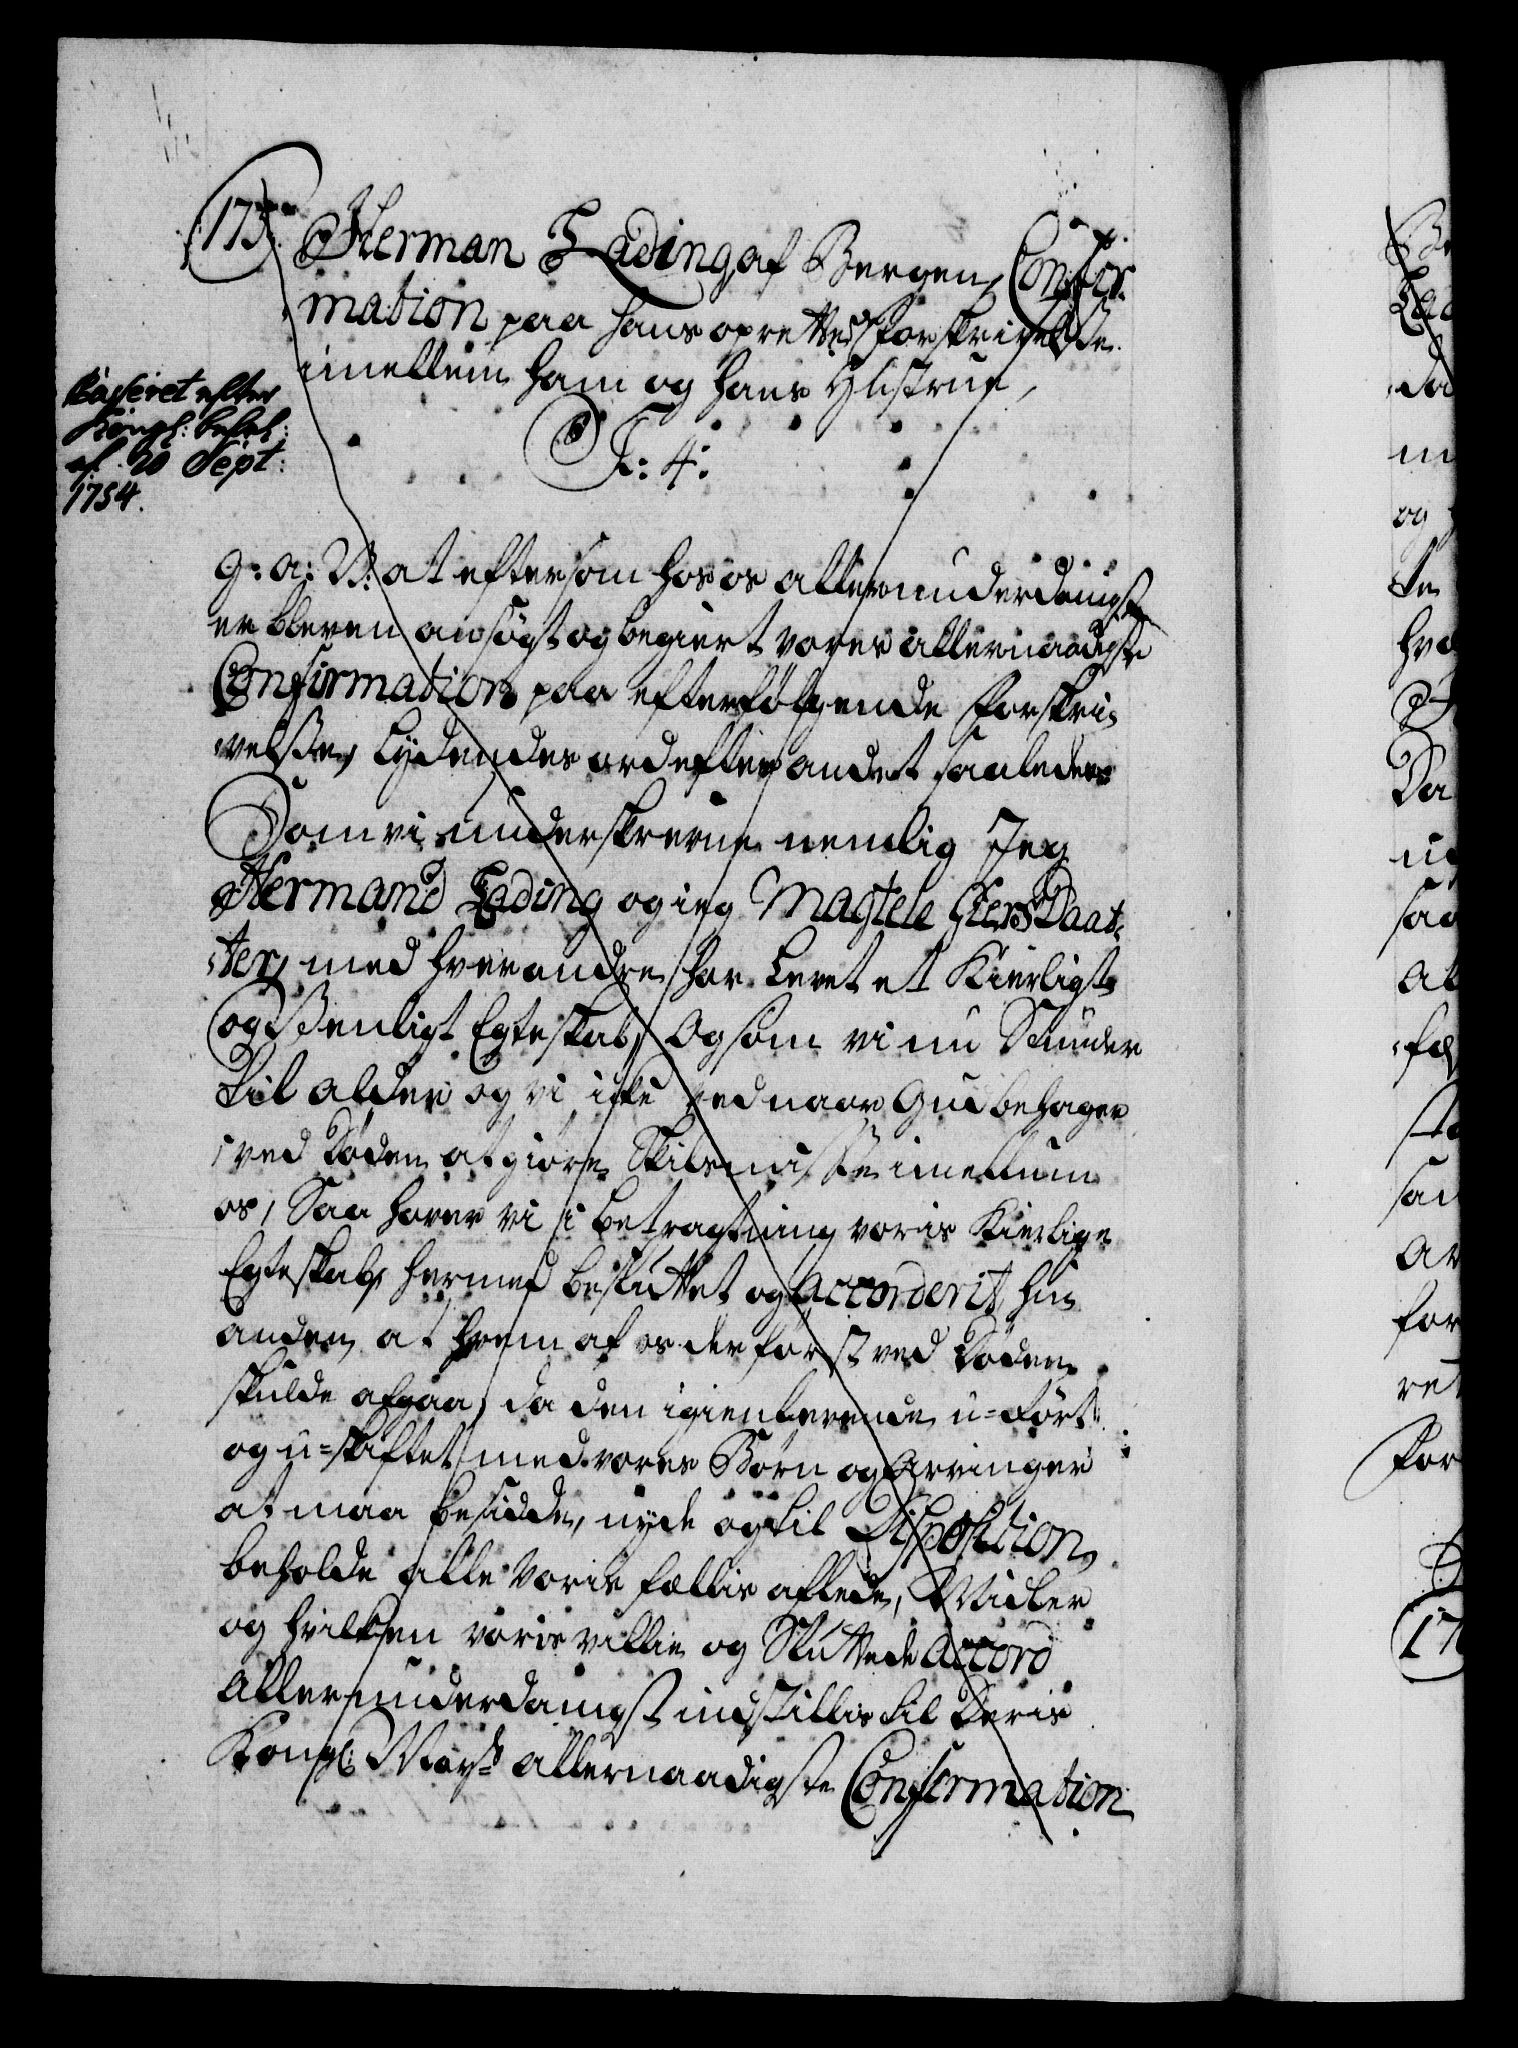 175.
Herman Lading af Bergen, Confir-
mation paa hans oprettede Forskrivelse
imellem ham og hans Hustrue,
Casseret efter
Kongl: befal:
af 20 Sept:
1754.
F: 4:
G: A: V: at eftersom hos os allerunderdanigst
er bleven ansøgt og begiert vores allernaadigste
Confirmation paa efterfølgende Forskri-
velsse, Lydendes ord efter andet saaledes
Som vi underskrevne nemlig Jeg
Hermand Lading og ieg Magtele GiersDaat-
ter, med hverandre har Levet et Kierligt
og Venligt Egteskab, Og som vi nu Stunder
til alder og vi icke ved naar Gud behager
ved Døden at giøre Skilsmisse imellum
os, Saa haver vi i betragtning voris Kierlige
Egteskab, hermed besluttet og Accorderit hin
anden, at hvem af os der først ved Døden
skulde afgaa, da den igienlevende u-kiørt
og u-skiftet med vores Børn og Arvinger
at maa besidde, nyde og til Disposition
beholde alle Voris fællis aflede, Midler
og hvilken voris villie og Sluttede Accord
Allerunderdanigst indstillis til Deris
Kongl: Mayts allernaadigste Confirmation